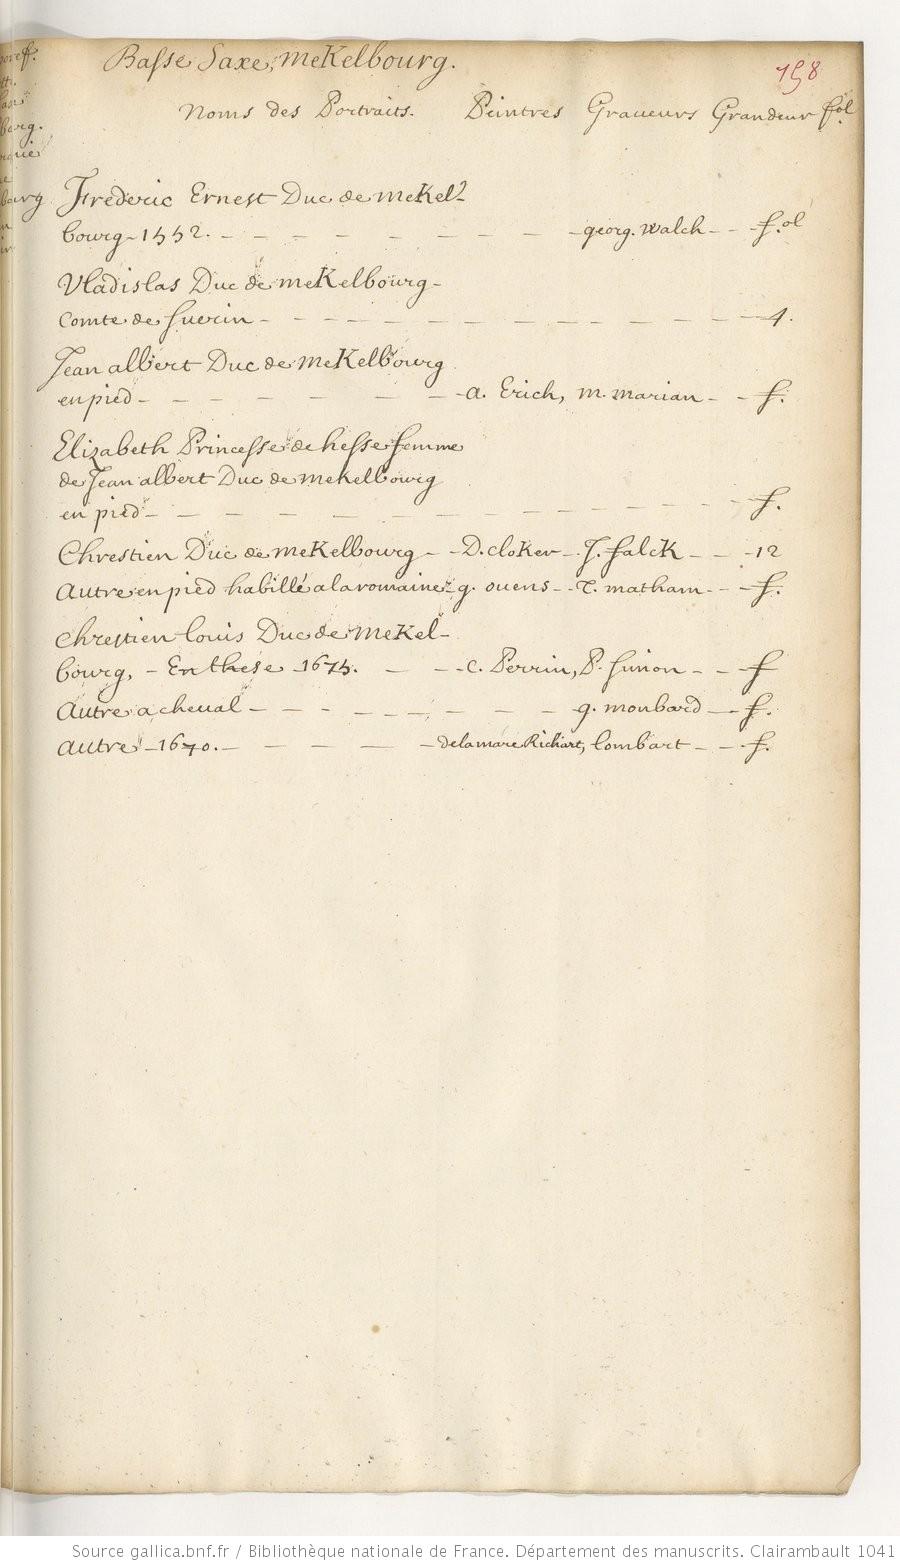 Basse Saxe, meKelbourg.
158
Noms des Portraits. Peintres Graueurs Grandeur fol
Frederic Ernest Duc de meKel-
bourg - 1552. - georg. walch - f.ol
Vladislas Duc de meKelbourg -
Comte de Suerin - 4.
Jean albert Duc de meKelbourg
en pied - a. Erich, m. marian - f.
Elizabeth Princesse de hesse femme
de Jean albert Duc de meKelbourg
en pied - f.
Chrestien Duc de meKelbourg - D. cloKer - J. falck - 12
Autre en pied habillé a la romaine - g. ouens - T. matham - f.
Chrestien louis Duc de meKel-
bourg, - En these 1675. - C. Perrin, P. Simon - f
Autre a cheval - g. monbard - f.
autre - 1670. - delamare Richart, lombart - f.
Source gallica.bnf.fr / Bibliothèque nationale de France. Département des manuscrits. Clairambault 1041